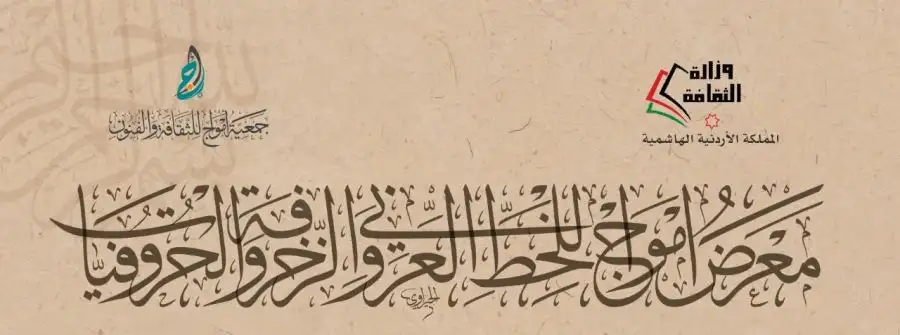 وزارة
الثقافة
المملكة الأردنية الهاشمية
جمعية أمواج للثقافة والفنون
مَعْرَض امْوَاج للخطّ العَرَبي والزّخرفَة والحُرُوفيّات